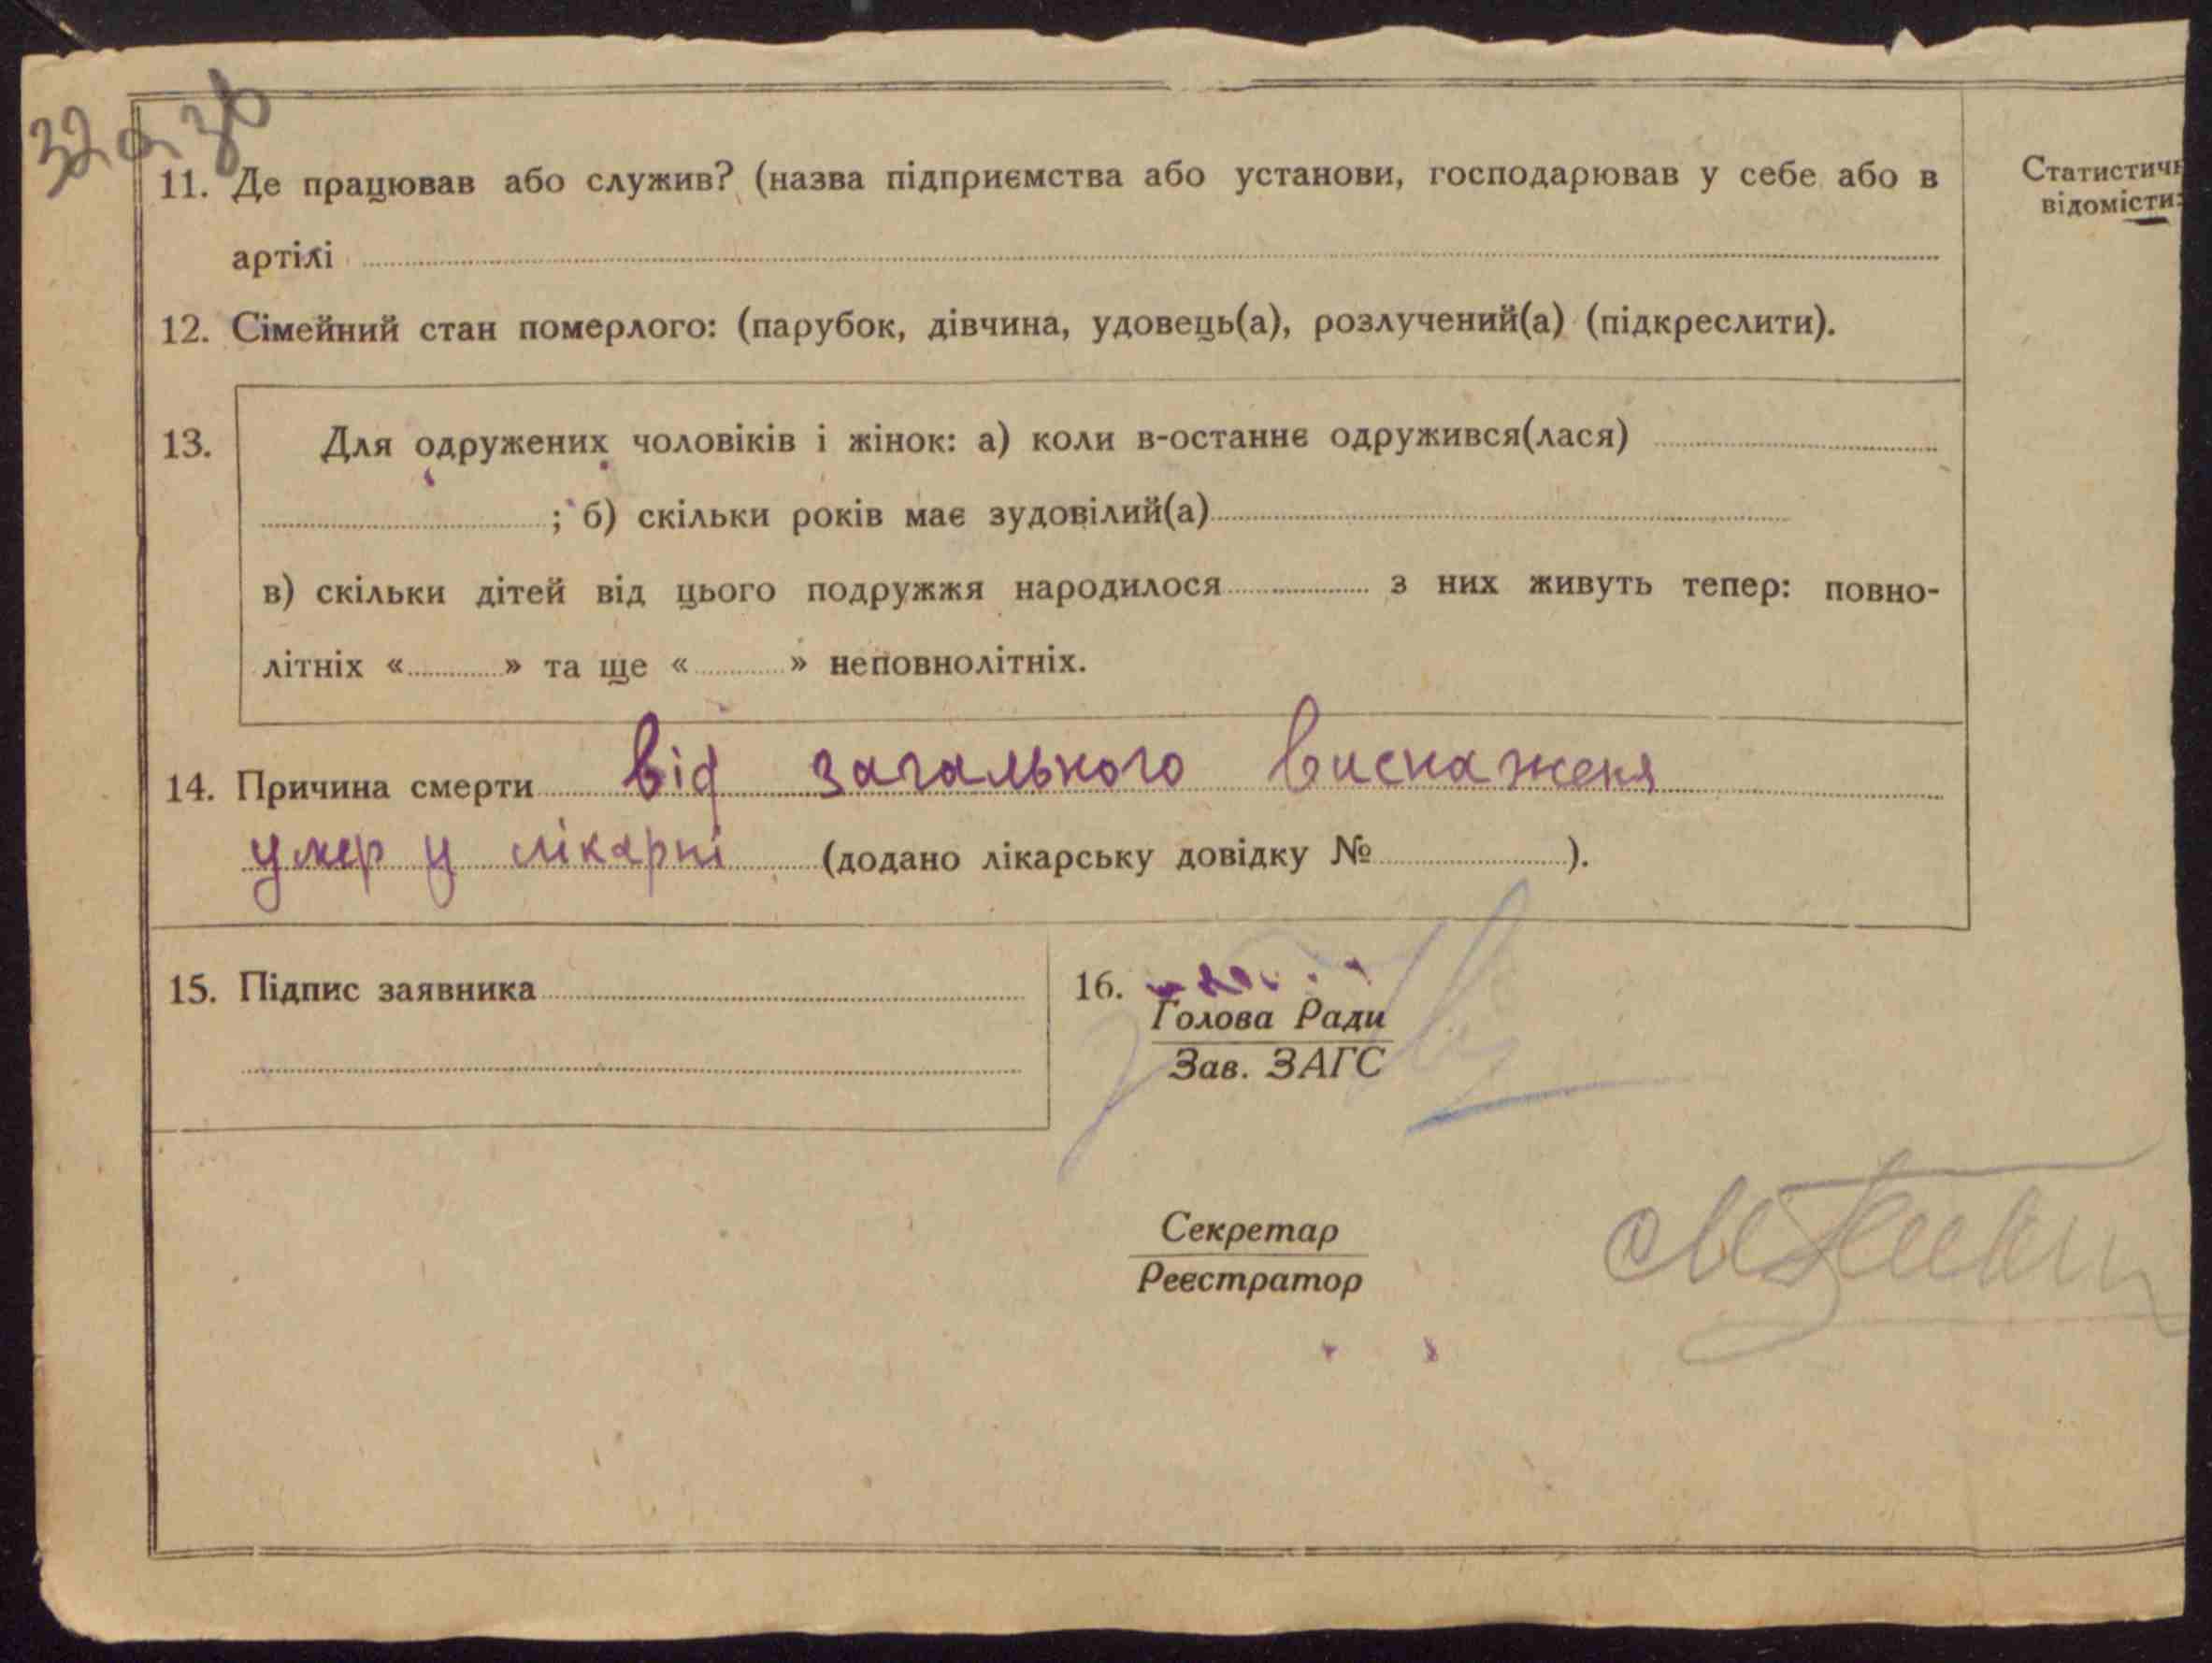 11. Де працював або служив? (назва підприємства або установи, господарював у себе або в
артілі
12. Сімейний стан померлого: (парубок, дівчина, удовець(а), розлучений(а) (підкреслити).
13. Для одружених чоловіків і жінок: а) коли в-останнє одружився(лася)
; б) скільки років має зудовілий(а)
в) скільки дітей від цього подружжя народилося з них живуть тепер: повно-
літніх « » та ще « » неповнолітніх.
14. Причина смерти від загального виснаженя
умер у лікарні (додано лікарську довідку № ).
15. Підпис заявника
16. Голова Ради
Зав. ЗАГС
Секретар
Реєстратор
Статистичн
відомісти: